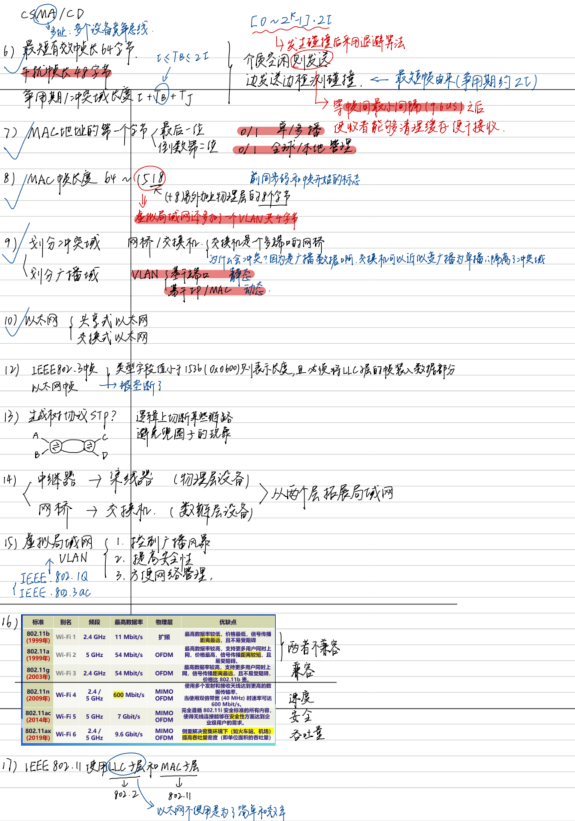 CSMA/CD
多址:多个设备复用总线
[0 ~ 2^k-1]·2I
发生碰撞后采用退避算法
6) 最短有效帧长64字节
干扰帧长48字节
I ≤ TB ≤ 2I
争用期/冲突域长度 I + TB + TJ
介质空闲则发送
边发送边检测碰撞
最短帧由来(争用期约2I)
等帧间最小间隔(9.6us)之后
使收者能够清理缓存便于接收.
7) MAC地址的第一个字节
最后一位 0/1 单/多播
倒数第二位 0/1 全球/本地管理
8) MAC帧长度 64 ~ 1518
前同步码和帧开始的标志
(+8)另外加上物理层的8个字节
虚拟局域网还多加了一个VLAN头4字节
9) 划分冲突域 网桥/交换机 交换机是个多端口的网桥
为什么会冲突?因为是广播数据口啊.交换机可以近似变广播为单播,隔离了冲突域
划分广播域 VLAN 基于端口 静态
基于IP/MAC 动态.
10) 以太网 共享式以太网
交换式以太网
12) IEEE802.3帧 类型字段值小于1536(0x0600)则表示长度,且必须将LLC层的帧装入数据部分
以太网帧 →被垄断了
13) 生成树协议STP? 逻辑上切断某些链路
避免兜圈子的现象
A C
B D
14) 中继器 → 集线器 (物理层设备)
从两个层拓展局域网
网桥 → 交换机. (数链层设备)
15) 虚拟局域网 1. 控制广播风暴
VLAN 2. 提高安全性
3. 方便网络管理.
IEEE.802.1Q
IEEE.802.3ac
16)
标准 别名 频段 最高数据率 物理层 优缺点
802.11b (1999年) Wi-Fi 1 2.4 GHz 11 Mbit/s 扩频 最高数据率较低,价格最低,信号传播距离最远,且不易受阻碍
802.11a (1999年) Wi-Fi 2 5 GHz 54 Mbit/s OFDM 最高数据率较高,支持更多用户同时上网,价格最高,信号传播距离较短,且易受阻碍.
802.11g (2003年) Wi-Fi 3 2.4 GHz 54 Mbit/s OFDM 最高数据率较高,支持更多用户同时上网,信号传播距离最远,且不易受阻碍,价格比 802.11b 贵.
802.11n (2009年) Wi-Fi 4 2.4 / 5 GHz 600 Mbit/s MIMO OFDM 使用多个发射和接收天线达到更高的数据传输率,当使用双倍带宽 (40 MHz) 时速率可达 600 Mbit/s.
802.11ac (2014年) Wi-Fi 5 5 GHz 7 Gbit/s MIMO OFDM 完全遵循 802.11i 安全标准的所有内容,使得无线连接能够在安全性方面达到企业级用户的需求.
802.11ax (2019年) Wi-Fi 6 2.4 / 5 GHz 9.6 Gbit/s MIMO OFDM 侧重解决密集环境下 (如火车站、机场) 提高吞吐量密度 (即单位面积的吞吐量)
两者不兼容
兼容
速度
安全
吞吐量
17) IEEE 802.11 使用LLC子层和MAC子层
802.2 802.11
以太网不使用是为了简单和效率